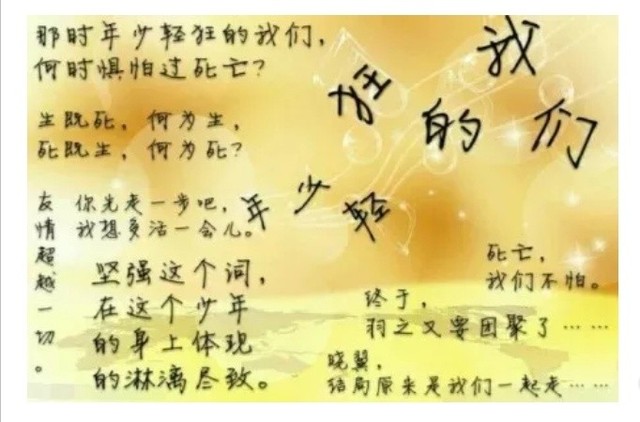 那时年少轻狂的我们，
何时惧怕过死亡？
生既死，何为生，
死既生，何为死？
年少轻狂的我们
友情超越一切。
你先走一步吧，
我想多活一会儿。
坚强这个词，
在这个少年
的身上体现
的淋漓尽致。
死亡，
我们不怕。
终于，
羽之又要团聚了……
晓翼，
结局原来是我们一起走……